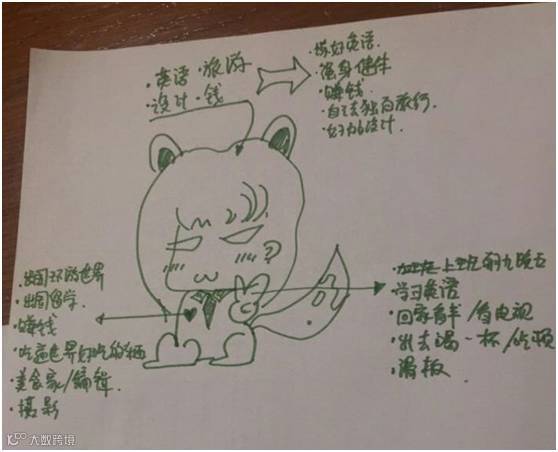 ·英语·旅游
·设计·钱
·练好英语.
·健身
·赚钱
·自己去独自旅行.
·设计.
·出国环游世界
·出国留学.
·赚钱
·吃遍世界好吃的
·美食家/编辑.
·摄影
·上班
·学习英语
·回家看书/看电视
·出去喝一杯/吃顿
·滑板
大数跨境